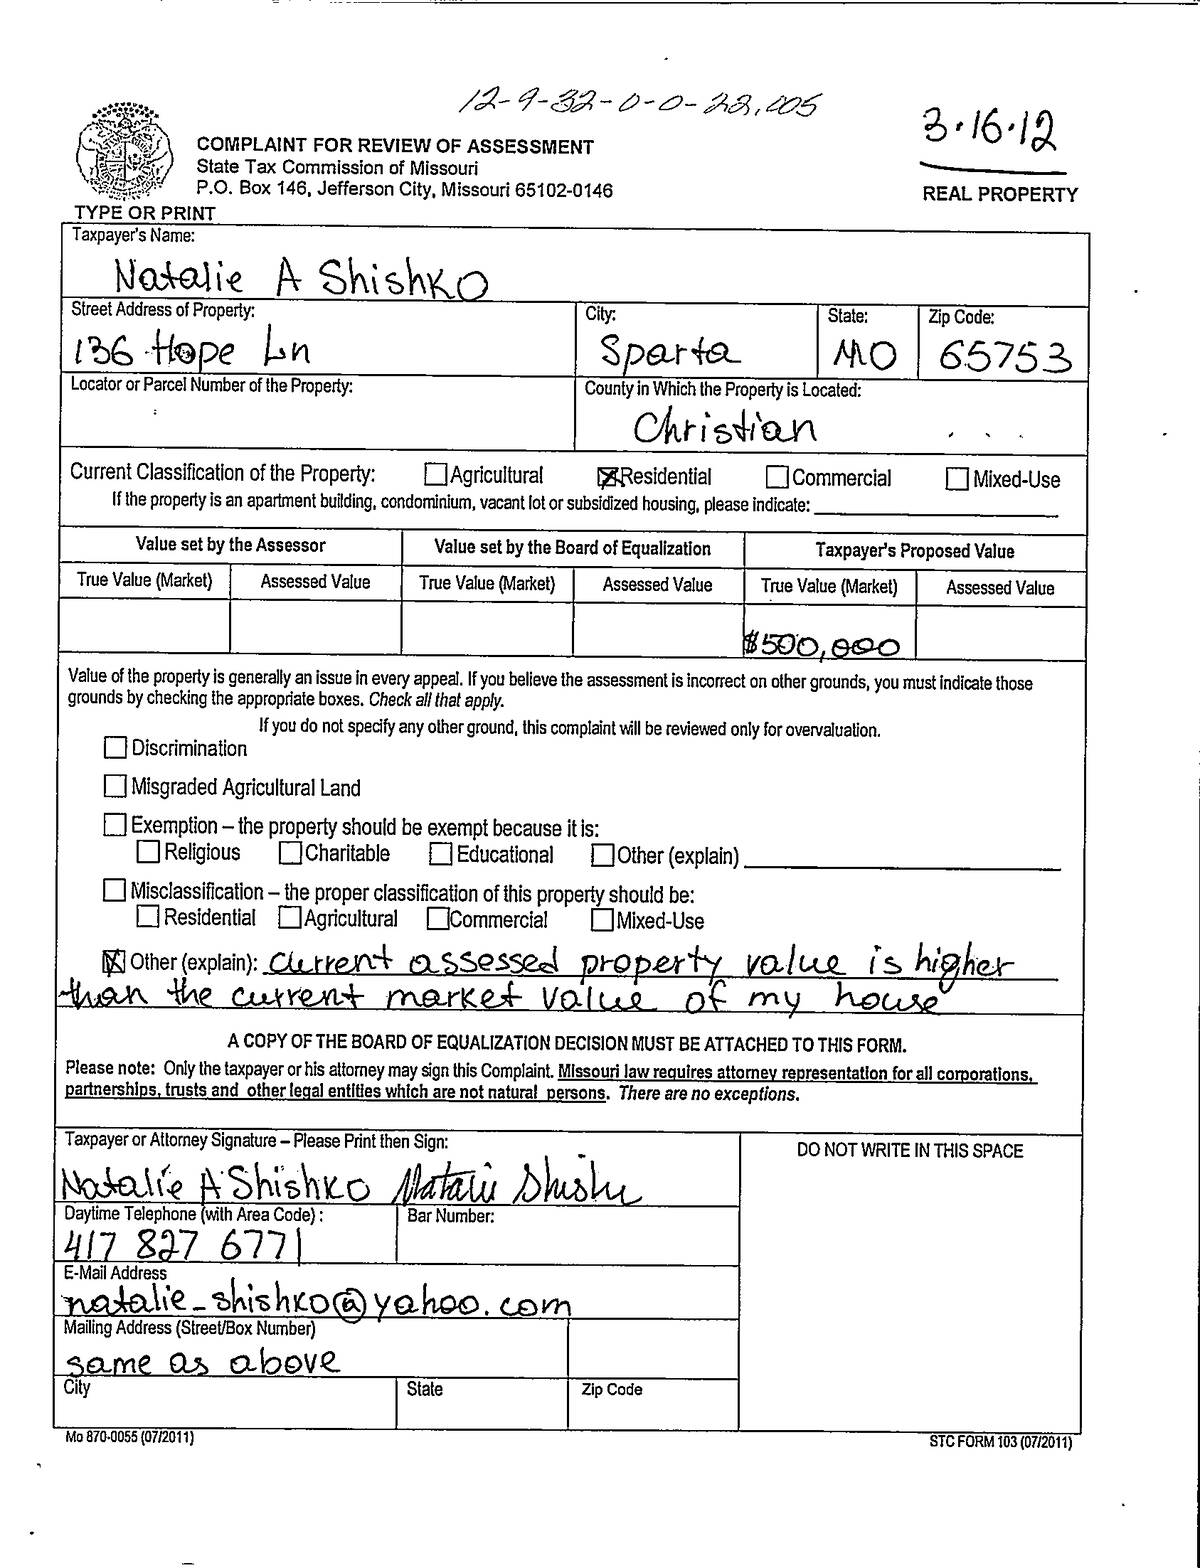 12-9-32-0-0-22.005
3·16·12
COMPLAINT FOR REVIEW OF ASSESSMENT
State Tax Commission of Missouri
P.O. Box 146, Jefferson City, Missouri 65102-0146
REAL PROPERTY
TYPE OR PRINT
Taxpayer's Name:
Natalie A Shishko
Street Address of Property: City: State: Zip Code:
136 Hope Ln Sparta MO 65753
Locator or Parcel Number of the Property: County in Which the Property is Located:
Christian
Current Classification of the Property: Agricultural Residential Commercial Mixed-Use
If the property is an apartment building, condominium, vacant lot or subsidized housing, please indicate:
Value set by the Assessor Value set by the Board of Equalization Taxpayer's Proposed Value
True Value (Market) Assessed Value True Value (Market) Assessed Value True Value (Market) Assessed Value
$500,000
Value of the property is generally an issue in every appeal. If you believe the assessment is incorrect on other grounds, you must indicate those
grounds by checking the appropriate boxes. Check all that apply.
If you do not specify any other ground, this complaint will be reviewed only for overvaluation.
Discrimination
Misgraded Agricultural Land
Exemption – the property should be exempt because it is:
Religious Charitable Educational Other (explain)
Misclassification – the proper classification of this property should be:
Residential Agricultural Commercial Mixed-Use
Other (explain): current assessed property value is higher
than the current market value of my house
A COPY OF THE BOARD OF EQUALIZATION DECISION MUST BE ATTACHED TO THIS FORM.
Please note: Only the taxpayer or his attorney may sign this Complaint. Missouri law requires attorney representation for all corporations,
partnerships, trusts and other legal entities which are not natural persons. There are no exceptions.
Taxpayer or Attorney Signature – Please Print then Sign: DO NOT WRITE IN THIS SPACE
Natalie A Shishko Natalie Shishk
Daytime Telephone (with Area Code) : Bar Number:
417 827 6771
E-Mail Address
natalie_shishko@yahoo.com
Mailing Address (Street/Box Number)
same as above
City State Zip Code
Mo 870-0055 (07/2011) STC FORM 103 (07/2011)